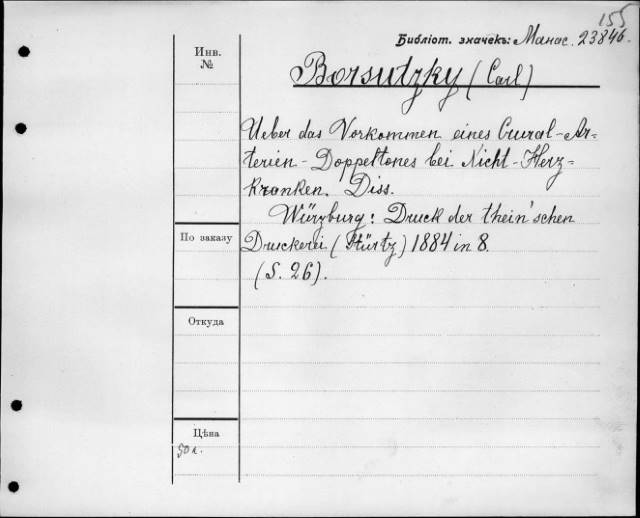 155
Библіот. значекъ: Манас. 23846.
Инв.
№
Borsutzky (Carl)
Ueber das Vorkommen eines Crural-Ar=
terien-Doppeltones bei Nicht-Herz=
kranken. Diss.
Würzburg: Druck der thein'schen
По заказу
Druckerei (Stürtz) 1884 in 8.
(S. 26).
Откуда
Цѣна
50 к.